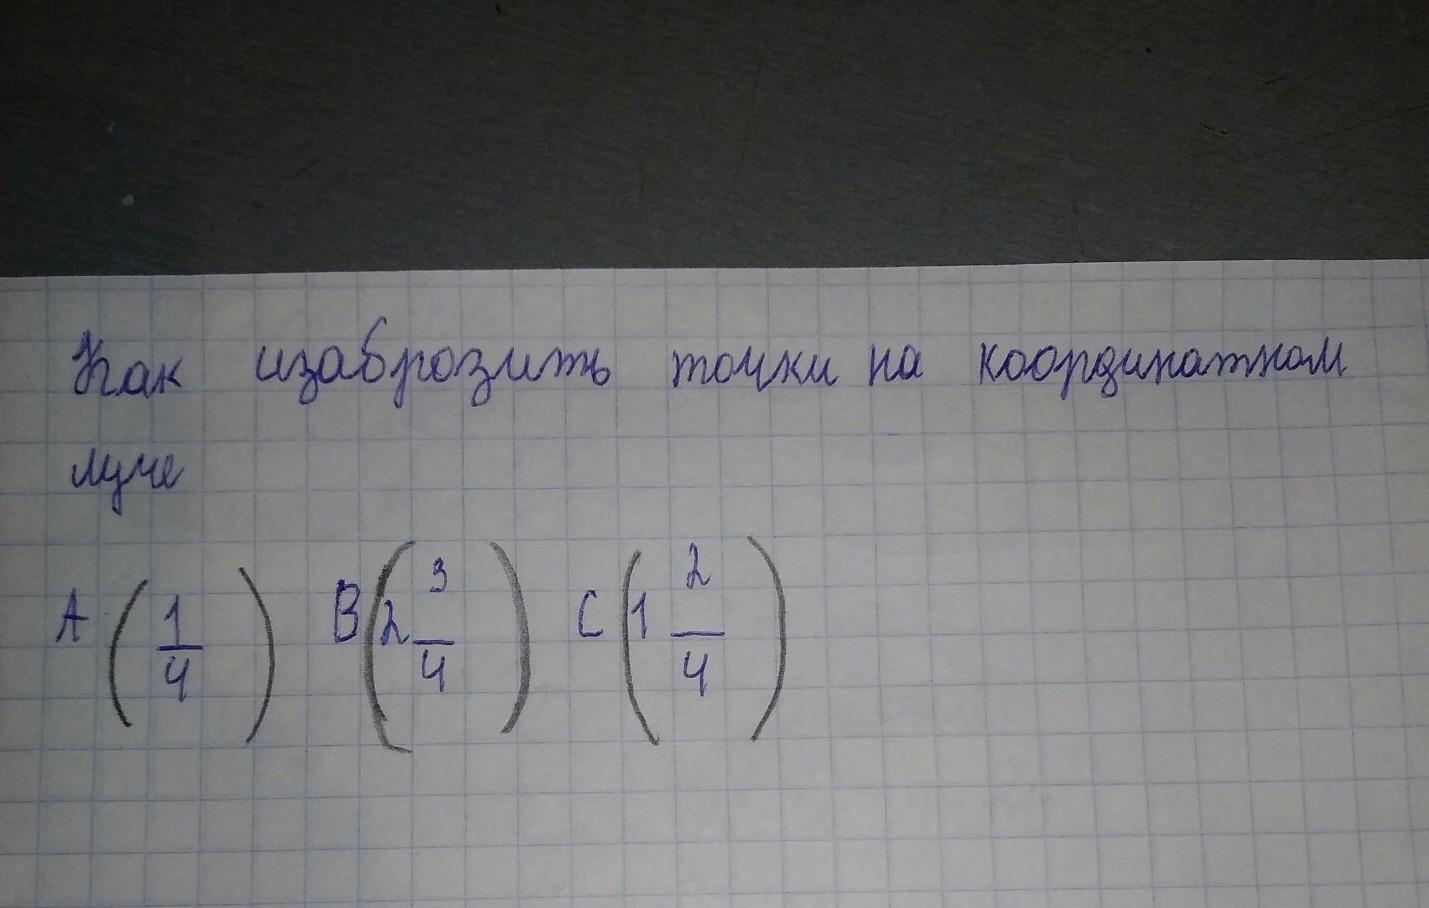 Как изаброзить точки на координатном
луче
A (1/4) B(2 3/4) C(1 2/4)